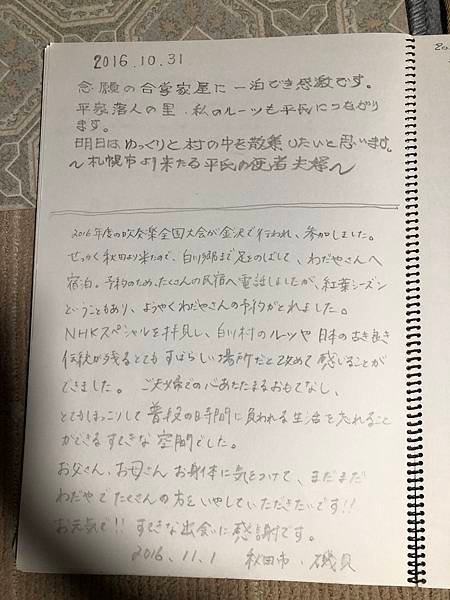 2016.10.31
念願の合掌家屋に一泊でき感激です。
平家落人の里 私のルーツも平氏につながり
ます。
明日はゆっくりと村の中を散策したいと思います。
〜札幌市より来たる平氏の使者夫婦〜
2016年度の吹奏楽全国大会が金沢で行われ、参加しました。
せっかく秋田より来たので、白川郷まで足をのばして、わだやさんへ
宿泊。予約のため、たくさんの民宿へ電話しましたが、紅葉シーズン
ということもあり、ようやくわだやさんの予約がとれました。
NHKスペシャルを拝見し、白川村のルーツや日本の古き良き
伝統が残るとてもすばらしい場所だと改めて感じることが
できました。 ご夫婦での心あたたまるおもてなし、
とてもほっこりして普段の時間に負われる生活を忘れること
ができるすてきな空間でした。
お父さん、お母さん お身体に気をつけて、まだまだ
わだやでたくさんの方をいやしていただきたいです!!
お元気で!! すてきな出会いに感謝です。
2016.11.1 秋田市・磯貝